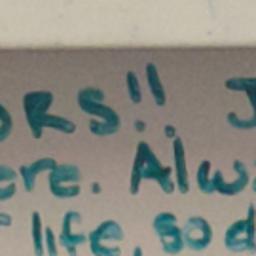 ORKS!! J
ere. Alwa
life, so d